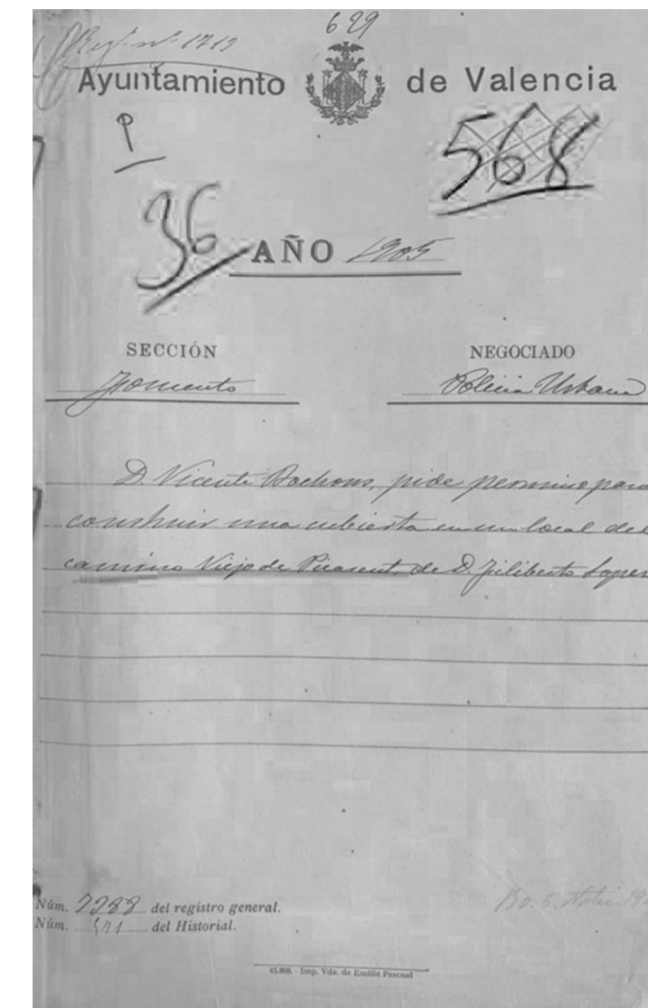 629
Reg. nº 1219
Ayuntamiento de Valencia
P
568
36
AÑO 1905
SECCIÓN NEGOCIADO
Fomento Policia Urbana
D. Vicente Bochons, pide permiso para
construir una cubierta en un local del
camino Viejo de Picasent, de D. Filiberto Lopez
Núm. 2288 del registro general.
Núm. 571 del Historial.
Imp. Vda. de Emilio Pascual